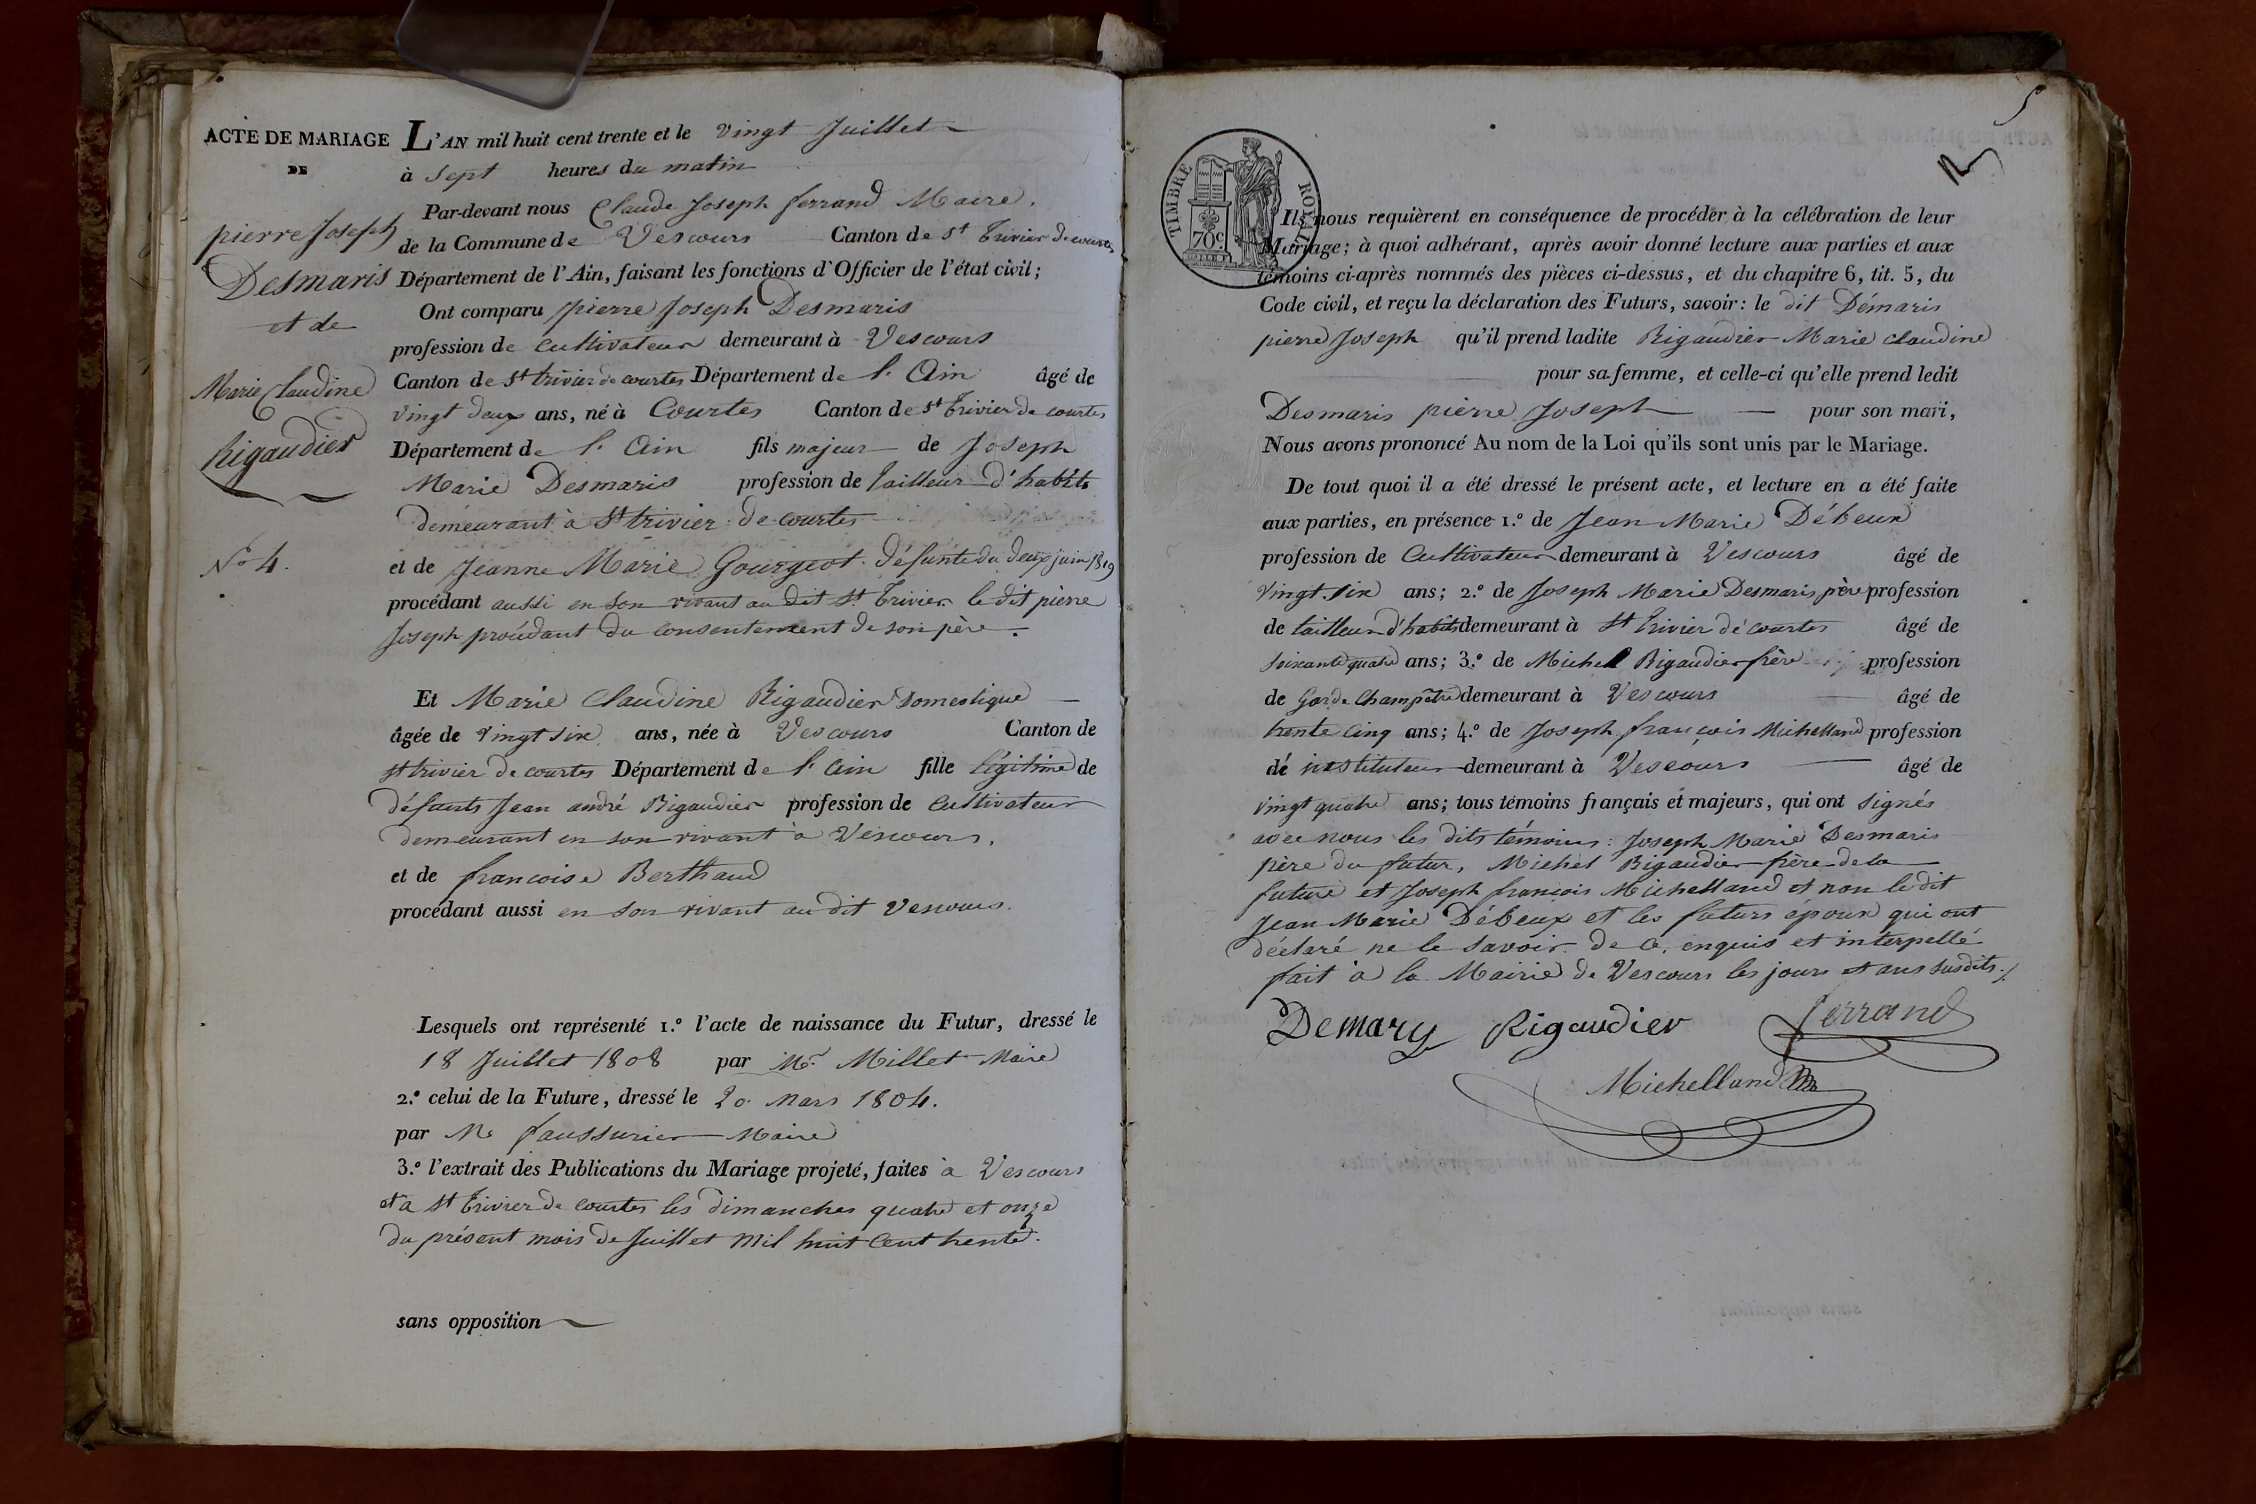 ACTE DE MARIAGE
DE
pierre Joseph
Desmaris
et de
Marie Claudine
Rigaudier
No 4.
L'AN mil huit cent trente et le vingt Juillet
à Sept heures du matin
Par-devant nous Claude Joseph ferrand Maire.
de la Commune de Vescours Canton de St Trivier de courtes
Département de l'Ain, faisant les fonctions d'Officier de l'état civil;
Ont comparu pierre Joseph Desmaris
profession de cultivateur demeurant à Vescours
Canton de St trivier de courtes Département de l'Ain âgé de
vingt deux ans, né à Courtes Canton de St Trivier de courtes
Département de l'Ain fils majeur de Joseph
Marie Desmaris profession de tailleur d'habits
demeurant à St trivier de courtes
et de Jeanne Marie Gourgeot défunte du deux juin 1819
procédant aussi en son vivant au dit St Trivier le dit pierre
Joseph procédant du consentement de son père.
Et Marie Claudine Rigaudier Domestique
âgée de vingt six ans, née à Vescours Canton de
st trivier de courtes Département de l'Ain fille légitime de
défunts Jean andré Rigaudier profession de Cultivateur
demeurant en son vivant à Vescours.
et de francoise Berthaud
procédant aussi en son vivant au dit Vescours.
Lesquels ont représenté 1.º l'acte de naissance du Futur, dressé le
18 Juillet 1808 par Mr. Millet Maire
2.º celui de la Future, dressé le 20 Mars 1804.
par Mr faussurier Maire
3.º l'extrait des Publications du Mariage projeté, faites à Vescours
et à St Trivier de courtes les dimanches quatre et onze
du présent mois de Juillet Mil huit Cent trente.
sans opposition
5
TIMBRE ROYAL
70c.
Ils nous requièrent en conséquence de procéder à la célébration de leur
Mariage; à quoi adhérant, après avoir donné lecture aux parties et aux
témoins ci-après nommés des pièces ci-dessus, et du chapitre 6, tit. 5, du
Code civil, et reçu la déclaration des Futurs, savoir: le dit Démaris
pierre Joseph qu'il prend ladite Rigaudier Marie Claudine
pour sa femme, et celle-ci qu'elle prend ledit
Desmaris pierre Joseph pour son mari,
Nous avons prononcé Au nom de la Loi qu'ils sont unis par le Mariage.
De tout quoi il a été dressé le présent acte, et lecture en a été faite
aux parties, en présence 1.º de Jean Marie Débeux
profession de Cultivateur demeurant à Vescours âgé de
vingt six ans; 2.º de Joseph Marie Desmaris père profession
de tailleur d'habits demeurant à St Trivier de courtes âgé de
soixante quatre ans; 3.º de Michel Rigaudier frère profession
de Garde Champêtre demeurant à Vescours âgé de
trente cinq ans; 4.º de Joseph françois Michelland profession
de instituteur demeurant à Vescours âgé de
vingt quatre ans; tous témoins français et majeurs, qui ont signés
avec nous les dits témoins: Joseph Marie Desmaris
père du futur, Michel Rigaudier frère de la
future et Joseph francois Michelland et non le dit
Jean Marie Débeux et les futurs époux qui ont
déclaré ne le savoir de ce, enquis et interpellé
fait à la Mairie de Vescours les jours et ans susdits.
Demary Rigaudier ferrand
Michelland